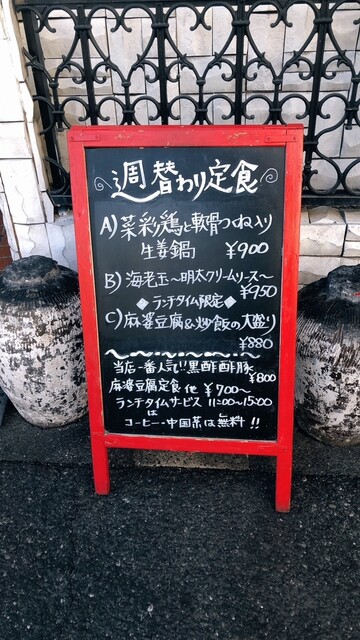 週替わり定食
A) 菜彩鶏と軟骨つくね入り
生姜鍋 ¥900
B) 海老玉〜明太クリームソース〜
¥950
◆ランチタイム限定◆
C) 麻婆豆腐&炒飯の大盛り
¥880
当店一番人気!!黒酢酢豚
¥800
麻婆豆腐定食 他 ¥700〜
ランチタイムサービス 11:00〜15:00
は
コーヒー・中国茶は無料!!